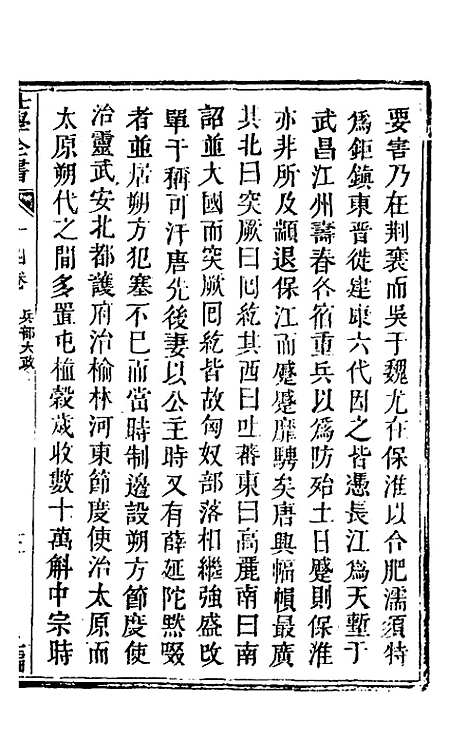 要害乃在荆襄而吳于魏尤在保淮以合肥濡須特
爲鉅鎮東晋徙建康六代因之皆憑長江爲天塹于
武昌江州壽春各宿重兵以爲防殆土日蹙則保淮
亦非所及顓退保江而蹙蹙靡騁矣唐興幅幀最廣
其北曰突厥曰囘紇其西曰吐蕃東曰高麗南曰南
詔並大國而突厥囘紇皆故匈奴部落相繼強盛改
單于稱可汗唐先後妻以公主時又有薛延陀黙啜
者並居朔方犯塞不已而當時制邊設朔方節度使
治靈武安北都護府治榆林河東節度使治太原而
太原朔代之間多置屯植穀歲收數十萬斛中宗時
學全書
卷
兵部大政